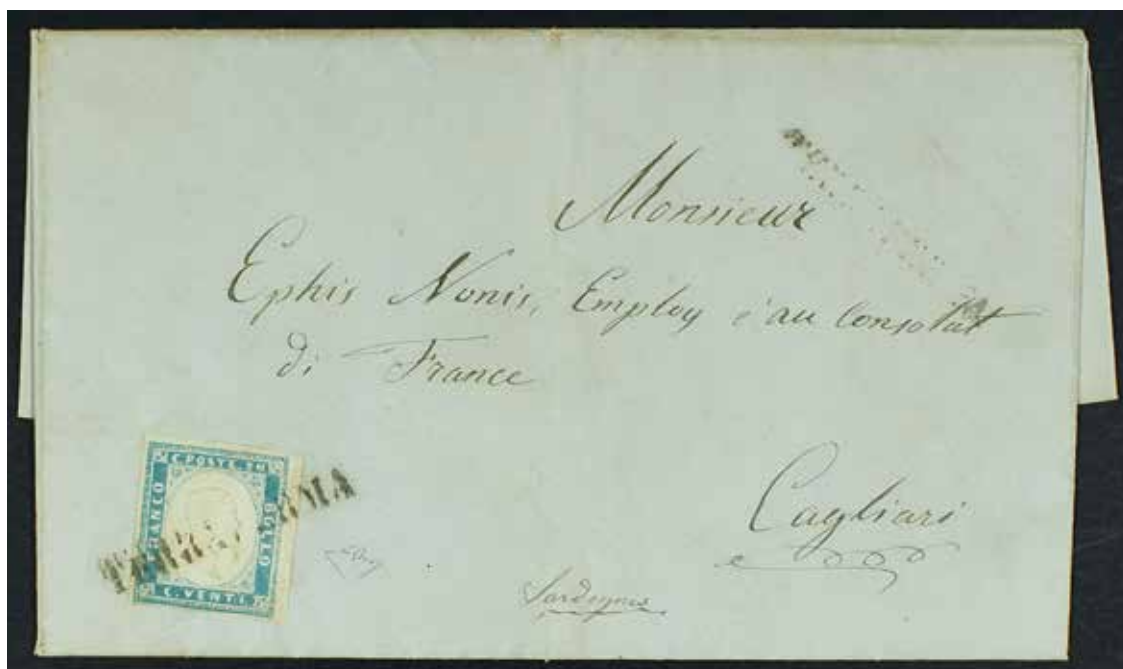 Monsieur
Ephis Nonis, Employ é au Consolat
di France
Cagliari
Sardegna
C. POSTE. 20
FRANCO
BOLLO
C. VENTI.